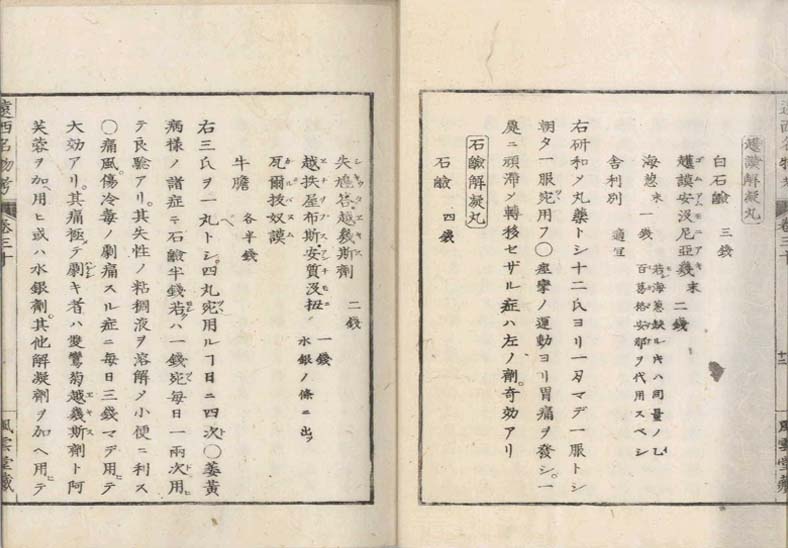 石鹸解凝丸
白石鹸 三錢
護謨安没尼亞幾 末 二錢
海葱 末 一錢 若シ海葱缺ル片ハ同量ノ
百葛格安那ヲ代用スベシ
舎利別 適宜
右研和メ丸藥トシ十二氏ヨリ一刄マデ一服トシ
朝夕一服宛用フ〇痙攣ノ運動ヨリ胃痛ヲ發シ一
處ニ頑滞メ轉移セザル症ハ左ノ劑奇効アリ
石鹸解凝丸
石鹸 四錢
失鳩答越幾斯劑 二錢
越抶屋布斯安質没扭 一錢 水銀ノ條ニ出ヅ
瓦爾抜奴謨
牛膽 各半錢
右三氏ヲ一丸トシ四丸宛用ルヿ日ニ四次〇萎黄
病様ノ諸症ニ石鹸半錢若クハ一錢宛毎日一兩次用
テ良驗アリ其失性ノ粘稠液ヲ溶解メ小便ニ利ス
〇痛風傷冷毒ノ劇痛スル症ニ毎日三錢マデ用テ
大効アリ其痛極テ劇キ者ハ雙鸞菊越幾斯劑ト阿
芙蓉ヲ加ヘ用ヒ或ハ水銀劑其他解凝劑ヲ加ヘ用テ
遠西名物考 卷三十
風雲堂藏
卷三十 十二
風雲堂藏